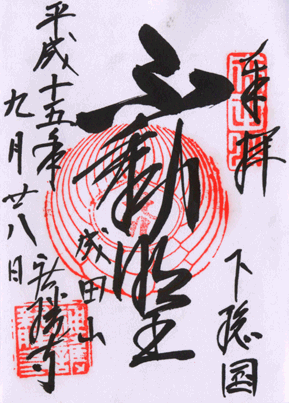 奉拝
下総国
不動明王
成田山
平成十五年
九月廿八日
新勝寺